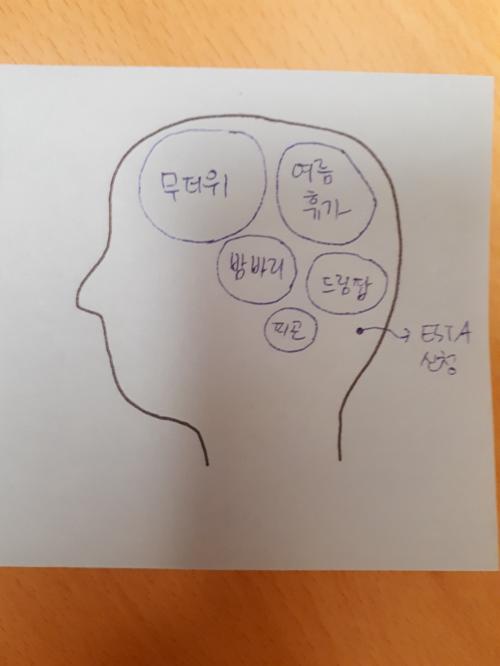 무더위
여름
휴가
밤바리
드림팝
피곤
ESTA
신청